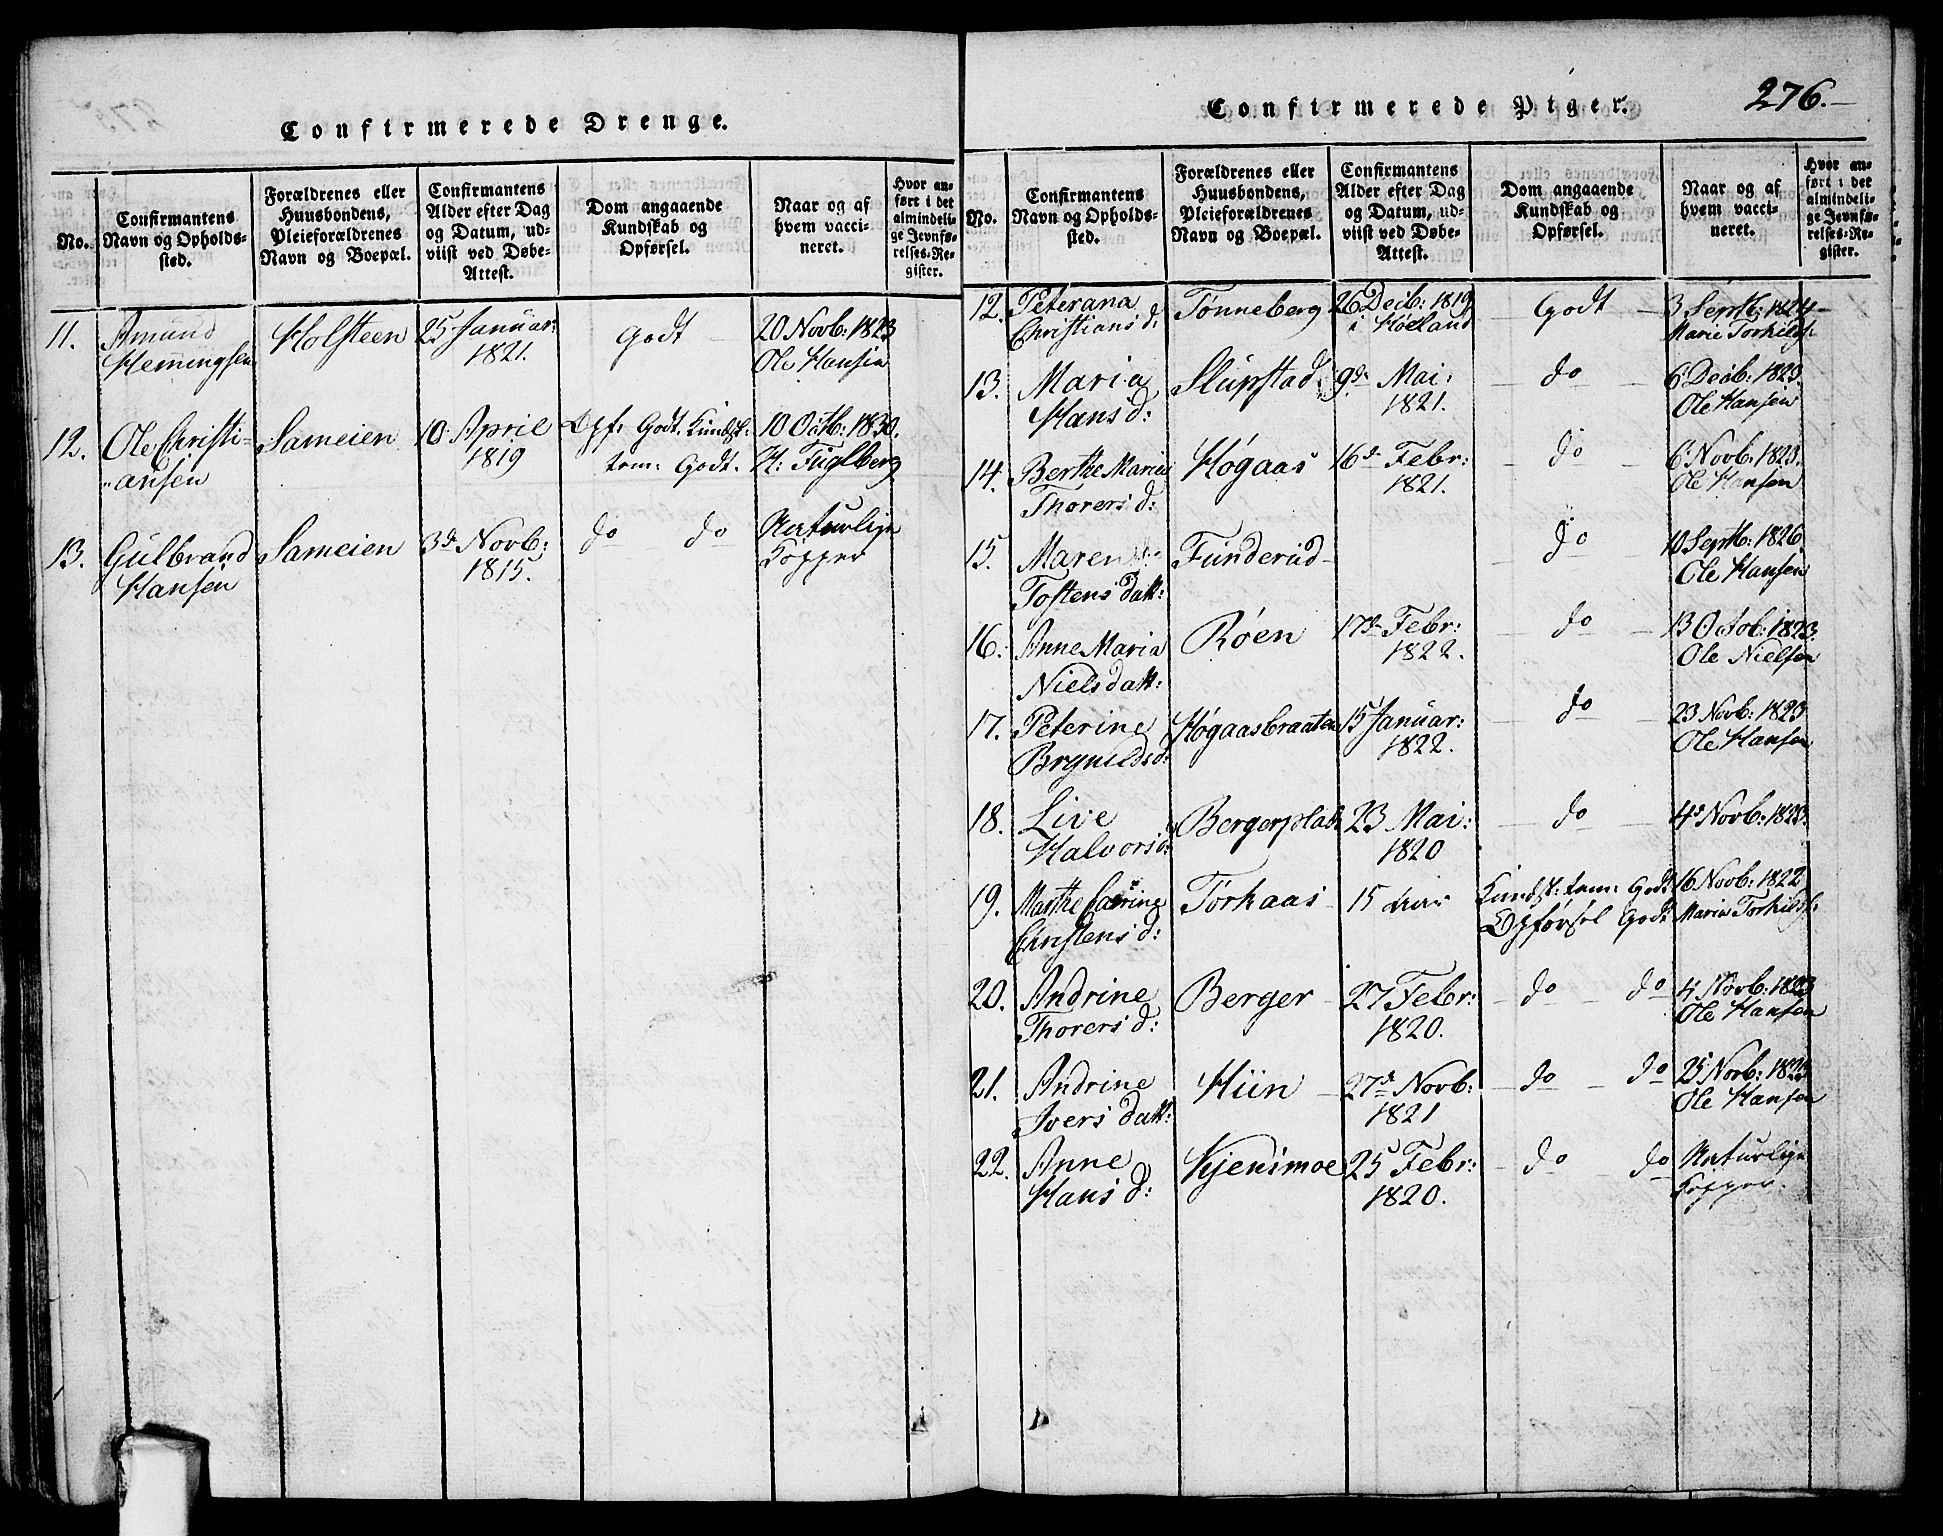 Confirmerede Drenge.
No.
Confirmantens
Navn og Opholds-
sted.
Forældrenes eller
Huusbondens,
Pleieforældrenes
Navn og Boepæl.
Confirmantens
Alder efter Dag
og Datum, ud-
viist ved Døbe-
Attest.
Dom angaaende
Kundskab og
Opførsel.
Naar og af
hvem vacci-
neret.
Hvor an-
ført i det
almindeli-
ge Jevnfø-
relses-Re-
gister.
11. Amund Holsteen 25 Januar: Godt 20 Novb: 1823
Hemingsen 1821. Ole Hansen
12. Ole Christi- Sameien 10 April Opf: Godt. Kundsk: 10 Octb: 1830.
ansen 1819 tem: Godt. H: Fuglberg
13. Gulbrand Sameien 3d Novb: do do Naturlige
Hansen 1815. Kopper
276.
Confirmerede Piger.
No.
Confirmantens
Navn og Opholds-
sted.
Forældrenes eller
Huusbondens,
Pleieforældrenes
Navn og Boepæl.
Confirmantens
Alder efter Dag
og Datum, ud-
viist ved Døbe-
Attest.
Dom angaaende
Kundskab og
Opførsel.
Naar og af
hvem vacci-
neret.
Hvor an-
ført i det
almindeli-
ge Jevnfø-
relses-Re-
gister.
12. Peterana Tønneberg 26 Decb: 1819 Godt 3 Septb: 1824
Christians d: i Høeland Marie Torkilds:
13. Maria Slupstad 9d Mai: do 6 Decb: 1823.
Hans d: 1821. Ole Hansen
14. Berthe Maria Høgaas 16d Febr: do 6 Novb: 1823.
Thorers d: 1821. Ole Hansen
15. Maren Funderud do 10 Septb: 1826
Tostens datt: Ole Hansen
16. Anne Maria Røen 17d Febr: do 13 Octob: 1823.
Niels datt: 1822. Ole Nielsen
17. Peterine Høgaasbraaten 15 Januar: do 23 Novb: 1823
Brynilds d: 1822. Ole Hansen
18. Live Bergerplads 23 Mai: do 4d Novb: 1823.
Halvors d: 1820
19. Marthe Torkaas 15 Kundsk: tem: Godt 16 Novb: 1822
Christens d: Opførsel Godt Maria Torkilds:
20. Andrine Berger 27 Febr: do do 4 Novb: 1823
Thorers d: 1820. Ole Hansen
21. Andrine Hiin 27d Novb: do do 25 Novb: 1823
Ivers datt: 1821 Ole Hansen
22. Anne Kjensmoe 25 Febr: do do Naturlige
Hans d: 1820. Kopper.